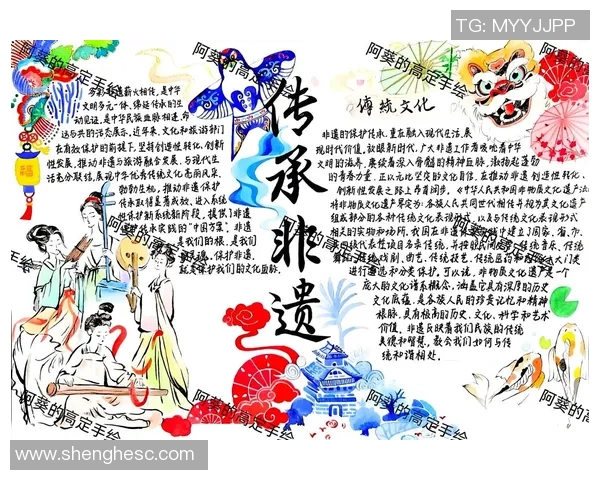 TG: MYYJJPP
阿葵的高定手绘
阿葵的高定手绘
阿葵的高定手绘
传承非遗
非遗薪火相传，是中华
文明多元一体、绵延传承的生
动见证，是中华民族血脉相连、命
运与共的活态展示。近年来，文化和旅游部门
在有效保护的前提下，坚持创造性转化、创新
性发展，推动非遗与旅游融合发展、与现代生
活充分联结，展现中华优秀传统文化高尚风采，
勃勃生机，推动非遗保护
传承取得显著成效，进入系统
性保护新阶段，提供了非遗
保护传承实践的“中国方案”。非遗
是我们的根，是我们
的灵魂，保护非遗，
就是保护我们的文化血脉。
傳統文化
非遗的保护传承，重在融入现代生活、展
现时代价值。放眼新时代，广大非遗工作者吸吮着中华
文明的滋养，赓续着深入骨髓的精神血脉，激扬起蓬勃
的青春力量，正以无比坚定的文化自信，在推动非遗创造性转化、
创新性发展之路上昂首阔步。《中华人民共和国非物质文化遗产法》
将非物质文化遗产界定为：各族人民世代相传并视为其文化遗产
组成部分的各种传统文化表现形式，以及与传统文化表现形式
相关的实物和场所。我国在非遗保护实践中建立了国家、省、市、
传统戏剧、曲艺、传统技艺、传统医药
进行遴选和分类保护。可以说，非物质文化遗产是一个
庞大的文化谱系概念，涵盖它具有深厚的历史
文化底蕴，是各族人民的珍贵记忆和精神
根脉，具有极高的历史、文化、科学和艺术
价值。非遗反映着我们民族的传统
美德和智慧，教会我们如何与传
统和谐相处。
阿葵的高定手绘
阿葵的高定手绘
阿葵的高定手绘
www.shenghesc.com